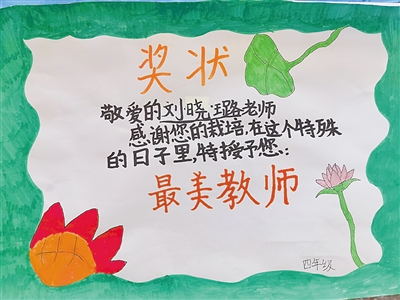 奖状
敬爱的刘晓璐老师
感谢您的栽培,在这个特殊
的日子里,特授予您:
最美教师
四年级